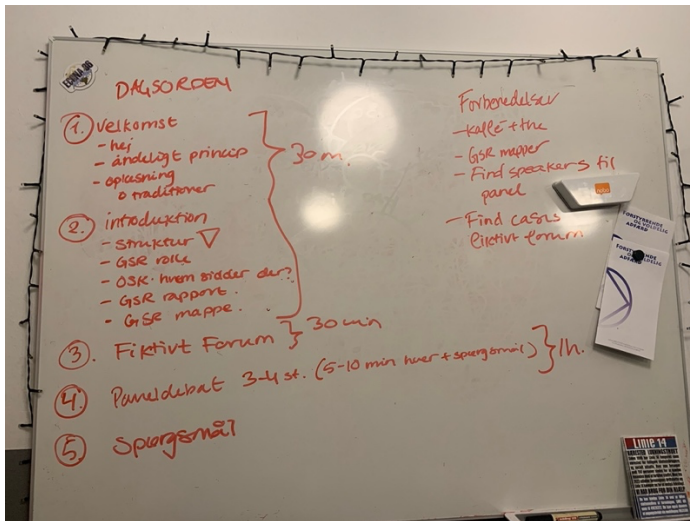 DAGSORDEN
1. Velkomst
- hej
- åndeligt princip
- oplæsning
o traditioner
30 m.
2. introduktion
- struktur ▽
- GSR rolle
- OSK. hvem sidder der?
- GSR rapport.
- GSR mappe.
3. Fiktivt Forum } 30 min
4. Paneldebat 3-4 st. (5-10 min hver + spørgsmål) } 1h.
5 Spørgsmål
Forberedelser
- kaffe + the
- GSR mapper
- Find speakers til
panel
- Find casus
fiktivt forum
FORSTYRRENDE
OG VOLDELIG
ADFÆRD
FORSTYRRENDE
OG VOLDELIG
ADFÆRD
Linie 14